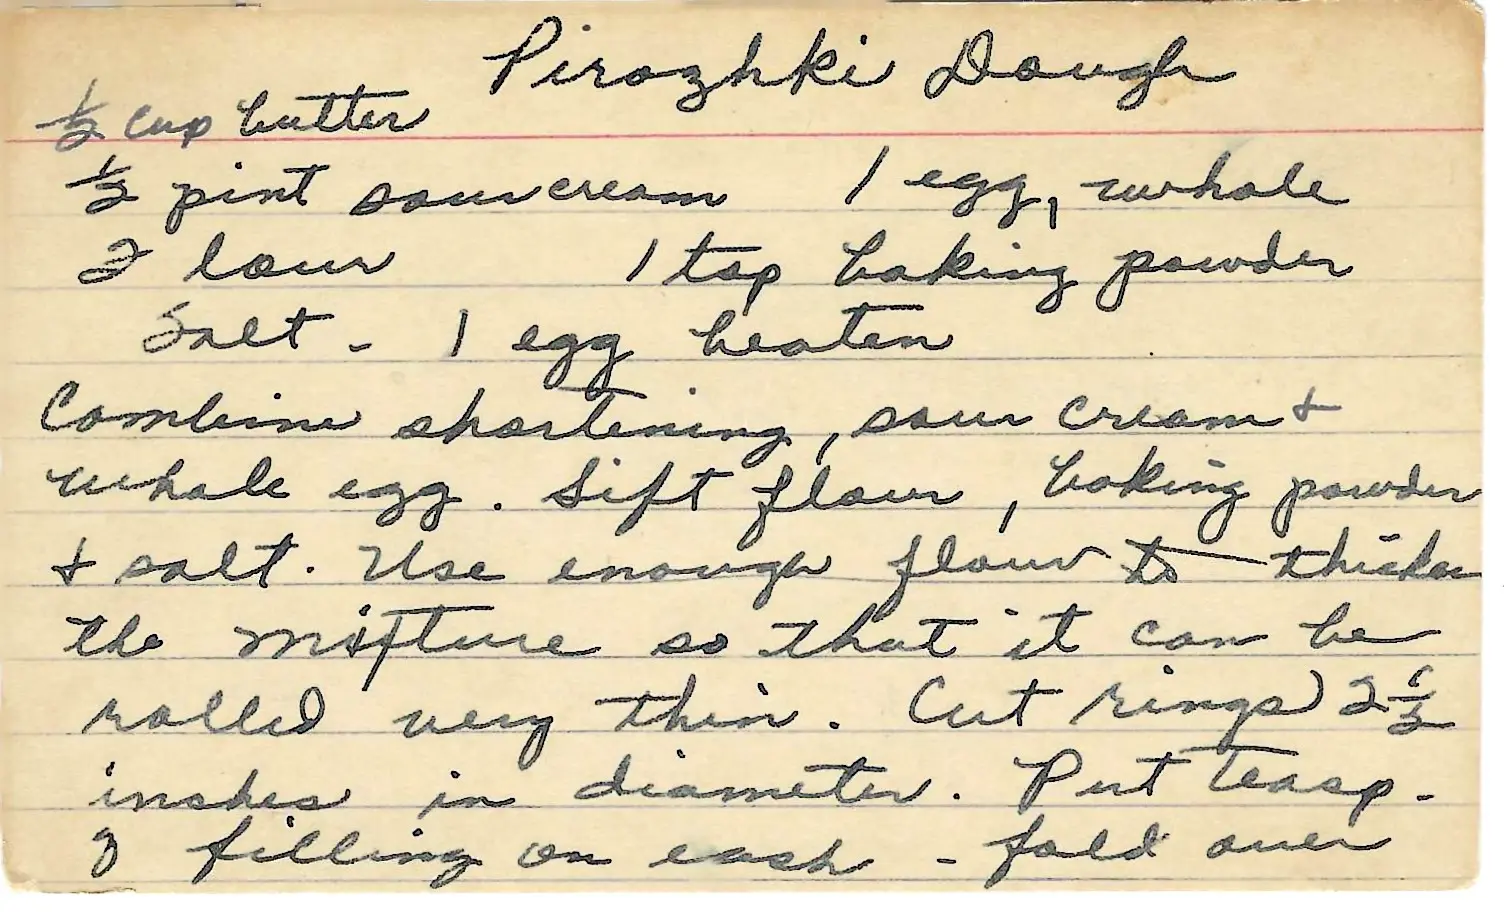 Pirozhki Dough
½ cup butter
½ pint sour cream 1 egg, whole
Flour 1 tsp baking powder
Salt - 1 egg beaten
Combine shortening, sour cream +
whole egg. Sift flour, baking powder
+ salt. Use enough flour to thicken
the mixture so that it can be
rolled very thin. Cut rings 2½
inches in diameter. Put teasp.
of filling on each - fold over